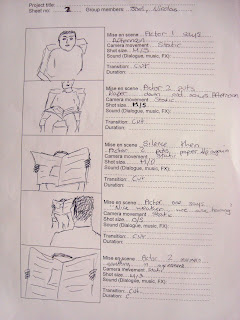 Project title
Sheet no: 2 Group members:
Mise en scene: Actor 1 says
Afternoon
Camera movement: Static
Shot size: M/S
Sound (Dialogue, music, FX):
Transition: CUT
Duration:
Mise en scene: Actor 2 puts
Paper down and says Afternoon
Camera movement: Static
Shot size: M/S
Sound (Dialogue, music, FX):
Transition: Cut
Duration:
Mise en scene: Silence then
Actor 2 puts paper up again
Camera movement: Static
Shot size:
Sound (Dialogue, music, FX):
Transition: Cut
Duration:
Mise en scene: Actor one says
Nice weather we are having
Camera movement: Static
Shot size: O/S
Sound (Dialogue, music, FX):
Transition: Cut
Duration:
Mise en scene: Actor 2
in agreement
Camera movement: Static
Shot size: M/S
Sound (Dialogue, music, FX):
Transition: Cut
Duration: